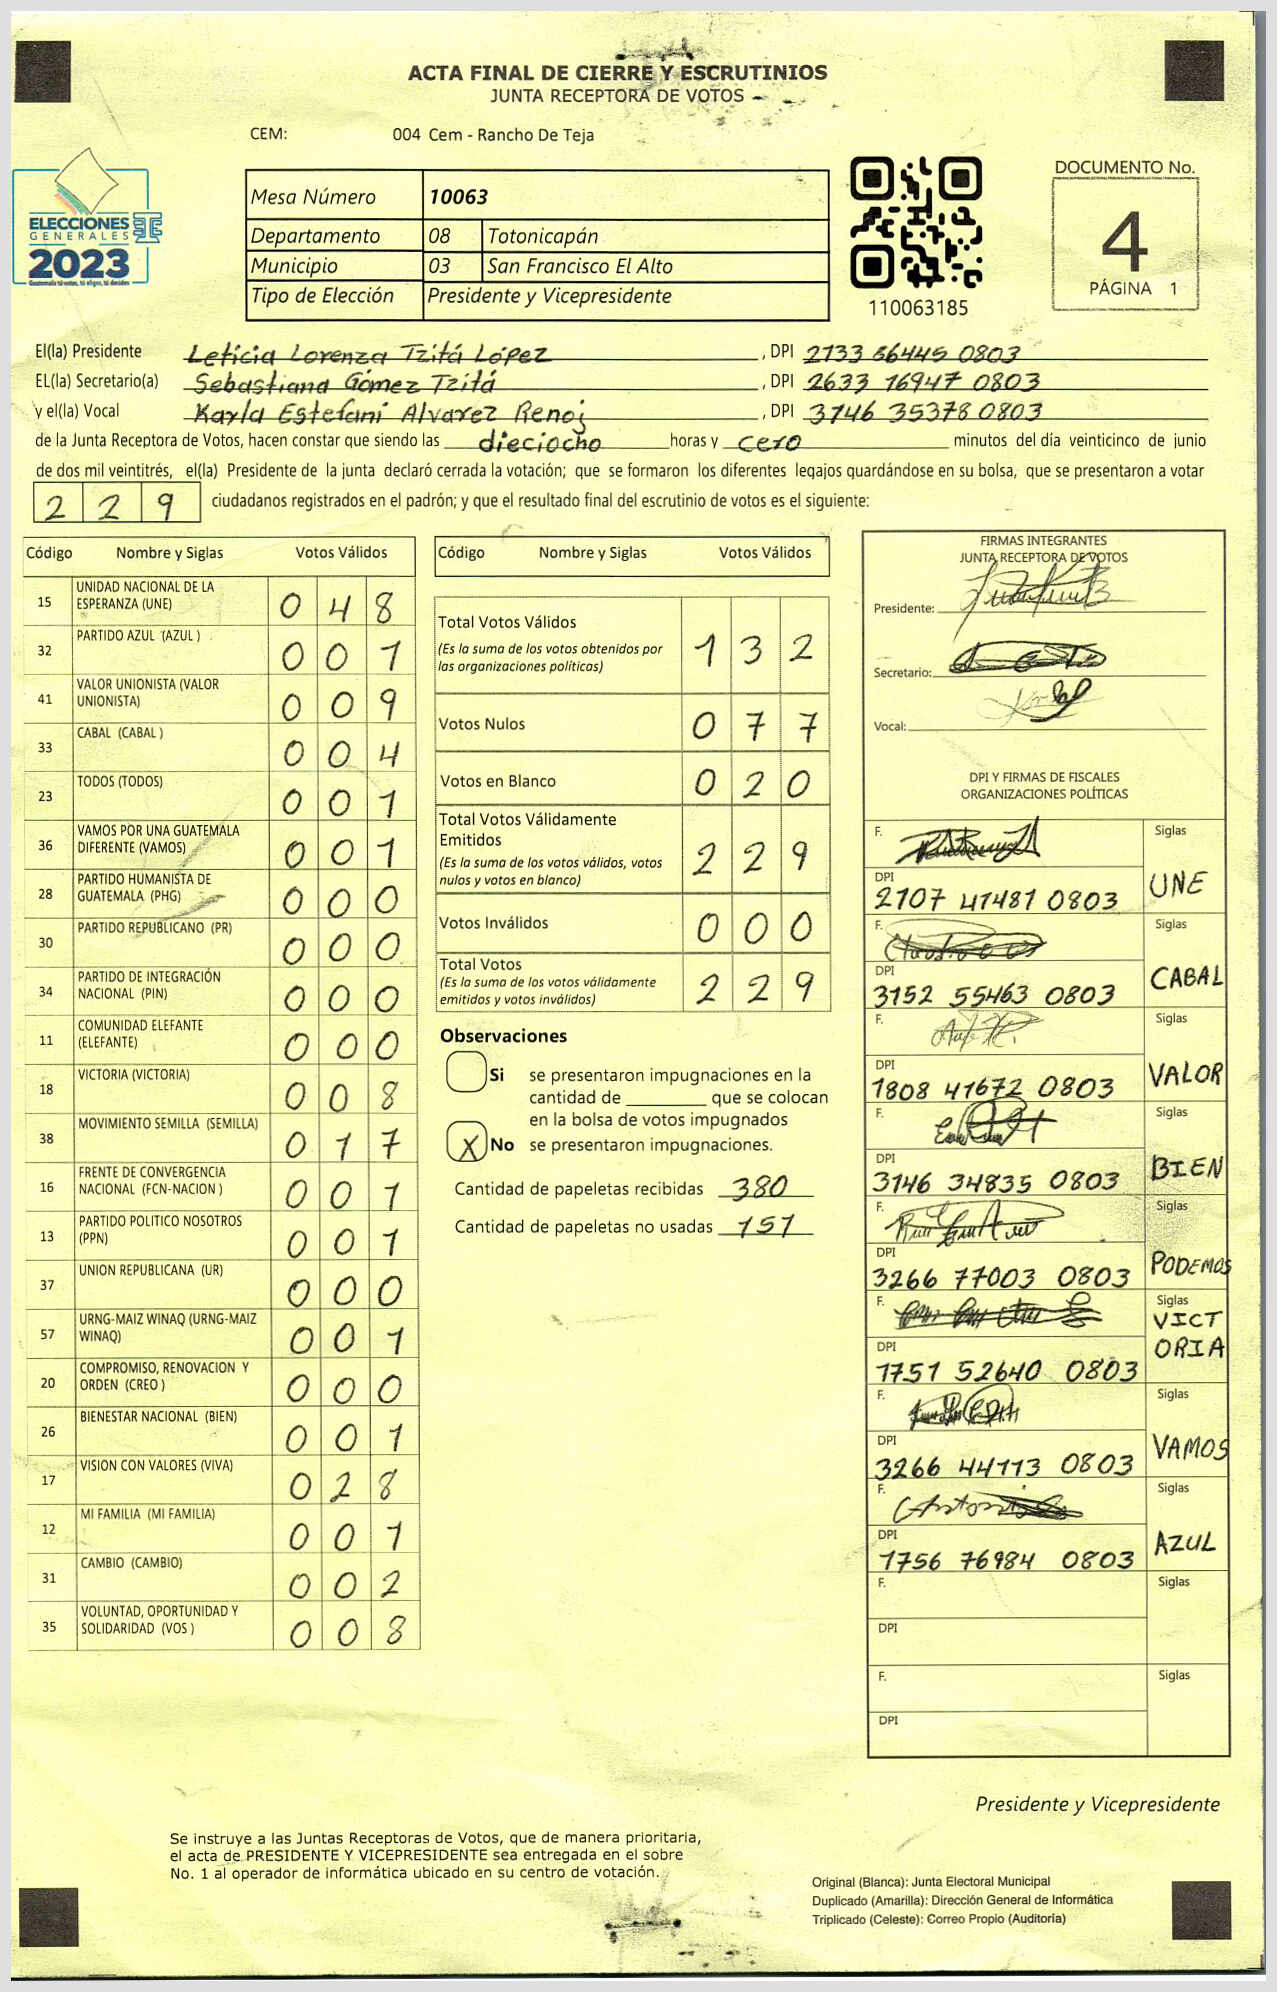 ACTA FINAL DE CIERRE Y ESCRUTINIOS
JUNTA RECEPTORA DE VOTOS
CEM: 004 Cem - Rancho De Teja
ELECCIONES
GENERALES
2023
Guatemala tú votas, tú eliges, tú decides
Mesa Número 10063
Departamento 08 Totonicapán
Municipio 03 San Francisco El Alto
Tipo de Elección Presidente y Vicepresidente
110063185
DOCUMENTO No.
4
PÁGINA 1
El(la) Presidente Leticia Lorenza Tzitá López, DPI 2133 66445 0803
EL(la) Secretario(a) Sebastiana Gómez Tzitá, DPI 2633 16947 0803
y el(la) Vocal Karla Estefani Alvarez Renoj, DPI 3146 35378 0803
de la Junta Receptora de Votos, hacen constar que siendo las dieciocho horas y cero minutos del día veinticinco de junio
de dos mil veintitrés, el(la) Presidente de la junta declaró cerrada la votación; que se formaron los diferentes legajos quardándose en su bolsa, que se presentaron a votar
229 ciudadanos registrados en el padrón; y que el resultado final del escrutinio de votos es el siguiente:
Código Nombre y Siglas Votos Válidos
15 UNIDAD NACIONAL DE LA ESPERANZA (UNE) 048
32 PARTIDO AZUL (AZUL ) 001
41 VALOR UNIONISTA (VALOR UNIONISTA) 009
33 CABAL (CABAL ) 004
23 TODOS (TODOS) 001
36 VAMOS POR UNA GUATEMALA DIFERENTE (VAMOS) 001
28 PARTIDO HUMANISTA DE GUATEMALA (PHG) 000
30 PARTIDO REPUBLICANO (PR) 000
34 PARTIDO DE INTEGRACIÓN NACIONAL (PIN) 000
11 COMUNIDAD ELEFANTE (ELEFANTE) 000
18 VICTORIA (VICTORIA) 008
38 MOVIMIENTO SEMILLA (SEMILLA) 017
16 FRENTE DE CONVERGENCIA NACIONAL (FCN-NACION ) 001
13 PARTIDO POLITICO NOSOTROS (PPN) 001
37 UNION REPUBLICANA (UR) 000
57 URNG-MAIZ WINAQ (URNG-MAIZ WINAQ) 001
20 COMPROMISO, RENOVACION Y ORDEN (CREO ) 000
26 BIENESTAR NACIONAL (BIEN) 001
17 VISION CON VALORES (VIVA) 028
12 MI FAMILIA (MI FAMILIA) 001
31 CAMBIO (CAMBIO) 002
35 VOLUNTAD, OPORTUNIDAD Y SOLIDARIDAD (VOS ) 008
Código Nombre y Siglas Votos Válidos
Total Votos Válidos 132
(Es la suma de los votos obtenidos por
las organizaciones políticas)
Votos Nulos 077
Votos en Blanco 020
Total Votos Válidamente
Emitidos 229
(Es la suma de los votos válidos, votos
nulos y votos en blanco)
Votos Inválidos 000
Total Votos 229
(Es la suma de los votos válidamente
emitidos y votos inválidos)
Observaciones
Si se presentaron impugnaciones en la
cantidad de ________ que se colocan
en la bolsa de votos impugnados
X No se presentaron impugnaciones.
Cantidad de papeletas recibidas 380
Cantidad de papeletas no usadas 151
FIRMAS INTEGRANTES
JUNTA RECEPTORA DE VOTOS
Presidente:
Secretario:
Vocal:
DPI Y FIRMAS DE FISCALES
ORGANIZACIONES POLÍTICAS
F. Siglas
DPI 2107 41481 0803 UNE
F. Siglas
DPI 3152 55463 0803 CABAL
F. Siglas
DPI 1808 41672 0803 VALOR
F. Siglas
DPI 3146 34835 0803 BIEN
F. Siglas
DPI 3266 77003 0803 PODEMOS
F. Siglas
DPI 1751 52640 0803 VICTORIA
F. Siglas
DPI 3266 44113 0803 VAMOS
F. Siglas
DPI 1756 76984 0803 AZUL
F. Siglas
DPI
F. Siglas
DPI
Presidente y Vicepresidente
Se instruye a las Juntas Receptoras de Votos, que de manera prioritaria,
el acta de PRESIDENTE Y VICEPRESIDENTE sea entregada en el sobre
No. 1 al operador de informática ubicado en su centro de votación.
Original (Blanca): Junta Electoral Municipal
Duplicado (Amarilla): Dirección General de Informática
Triplicado (Celeste): Correo Propio (Auditoría)